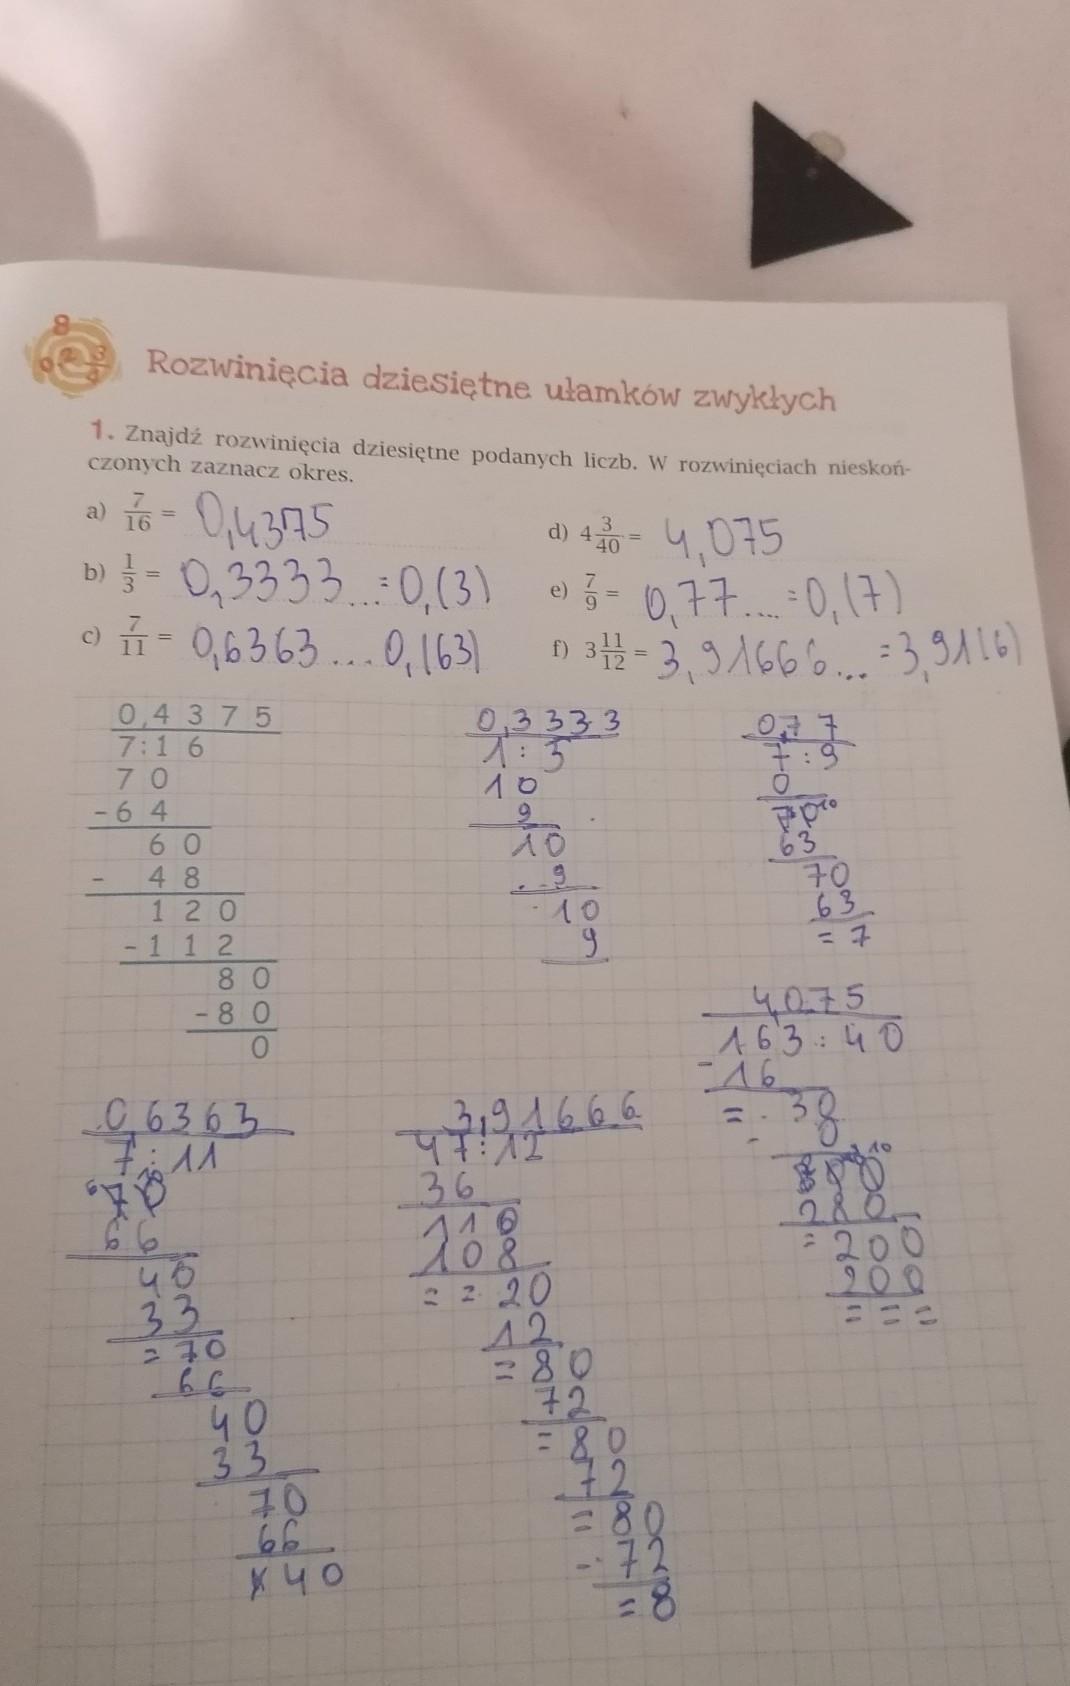 8
0,2 3/4
Rozwinięcia dziesiętne ułamków zwykłych
1. Znajdź rozwinięcia dziesiętne podanych liczb. W rozwinięciach nieskoń-
czonych zaznacz okres.
a) 7/16 = 0,4375
b) 1/3 = 0,3333... = 0,(3)
c) 7/11 = 0,6363... 0,(63)
d) 4 3/40 = 4,075
e) 7/9 = 0,77.... = 0,(7)
f) 3 11/12 = 3,91666... = 3,91(6)
0,4375
7:16
70
-64
60
- 48
120
-112
80
-80
0
0,3333
1:3
10
9
10
9
10
9
0,77
7:9
0
70
63
70
63
=7
4,075
163:40
-16
= 38
- 0
280
=200
200
= = =
0,6363
7:11
70
66
40
33
=70
66
40
33
70
66
40
3,91666
47:12
36
110
108
= = 20
12
=80
72
=80
72
=80
-72
=8